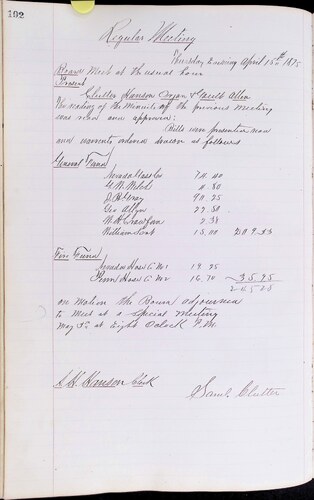 192
Regular Meeting
Thursday Evening April 15th 1875
Board Meet at the usual hour
Present
Clutter Hanson Organ & Gault Allen
The reading of the Minutes of the previous Meeting
was read and approved:
Bills were presented read
and warrants ordered drawn as follows
General Fund
Nevada Gas Co
G. W. Welch
D. H. Gray
Geo Allen
W. H. Crawford 2.38
William 209.53
Fire Fund
Nevada Hose Co No 1 19.25
Penn Hose Co No 2 16.70 35.25
On motion the Board adjourned
to Meet at a Special Meeting
May 3d at Eight Oclock P.M.
S. H. Hanson Clerk
Saml. Clutter